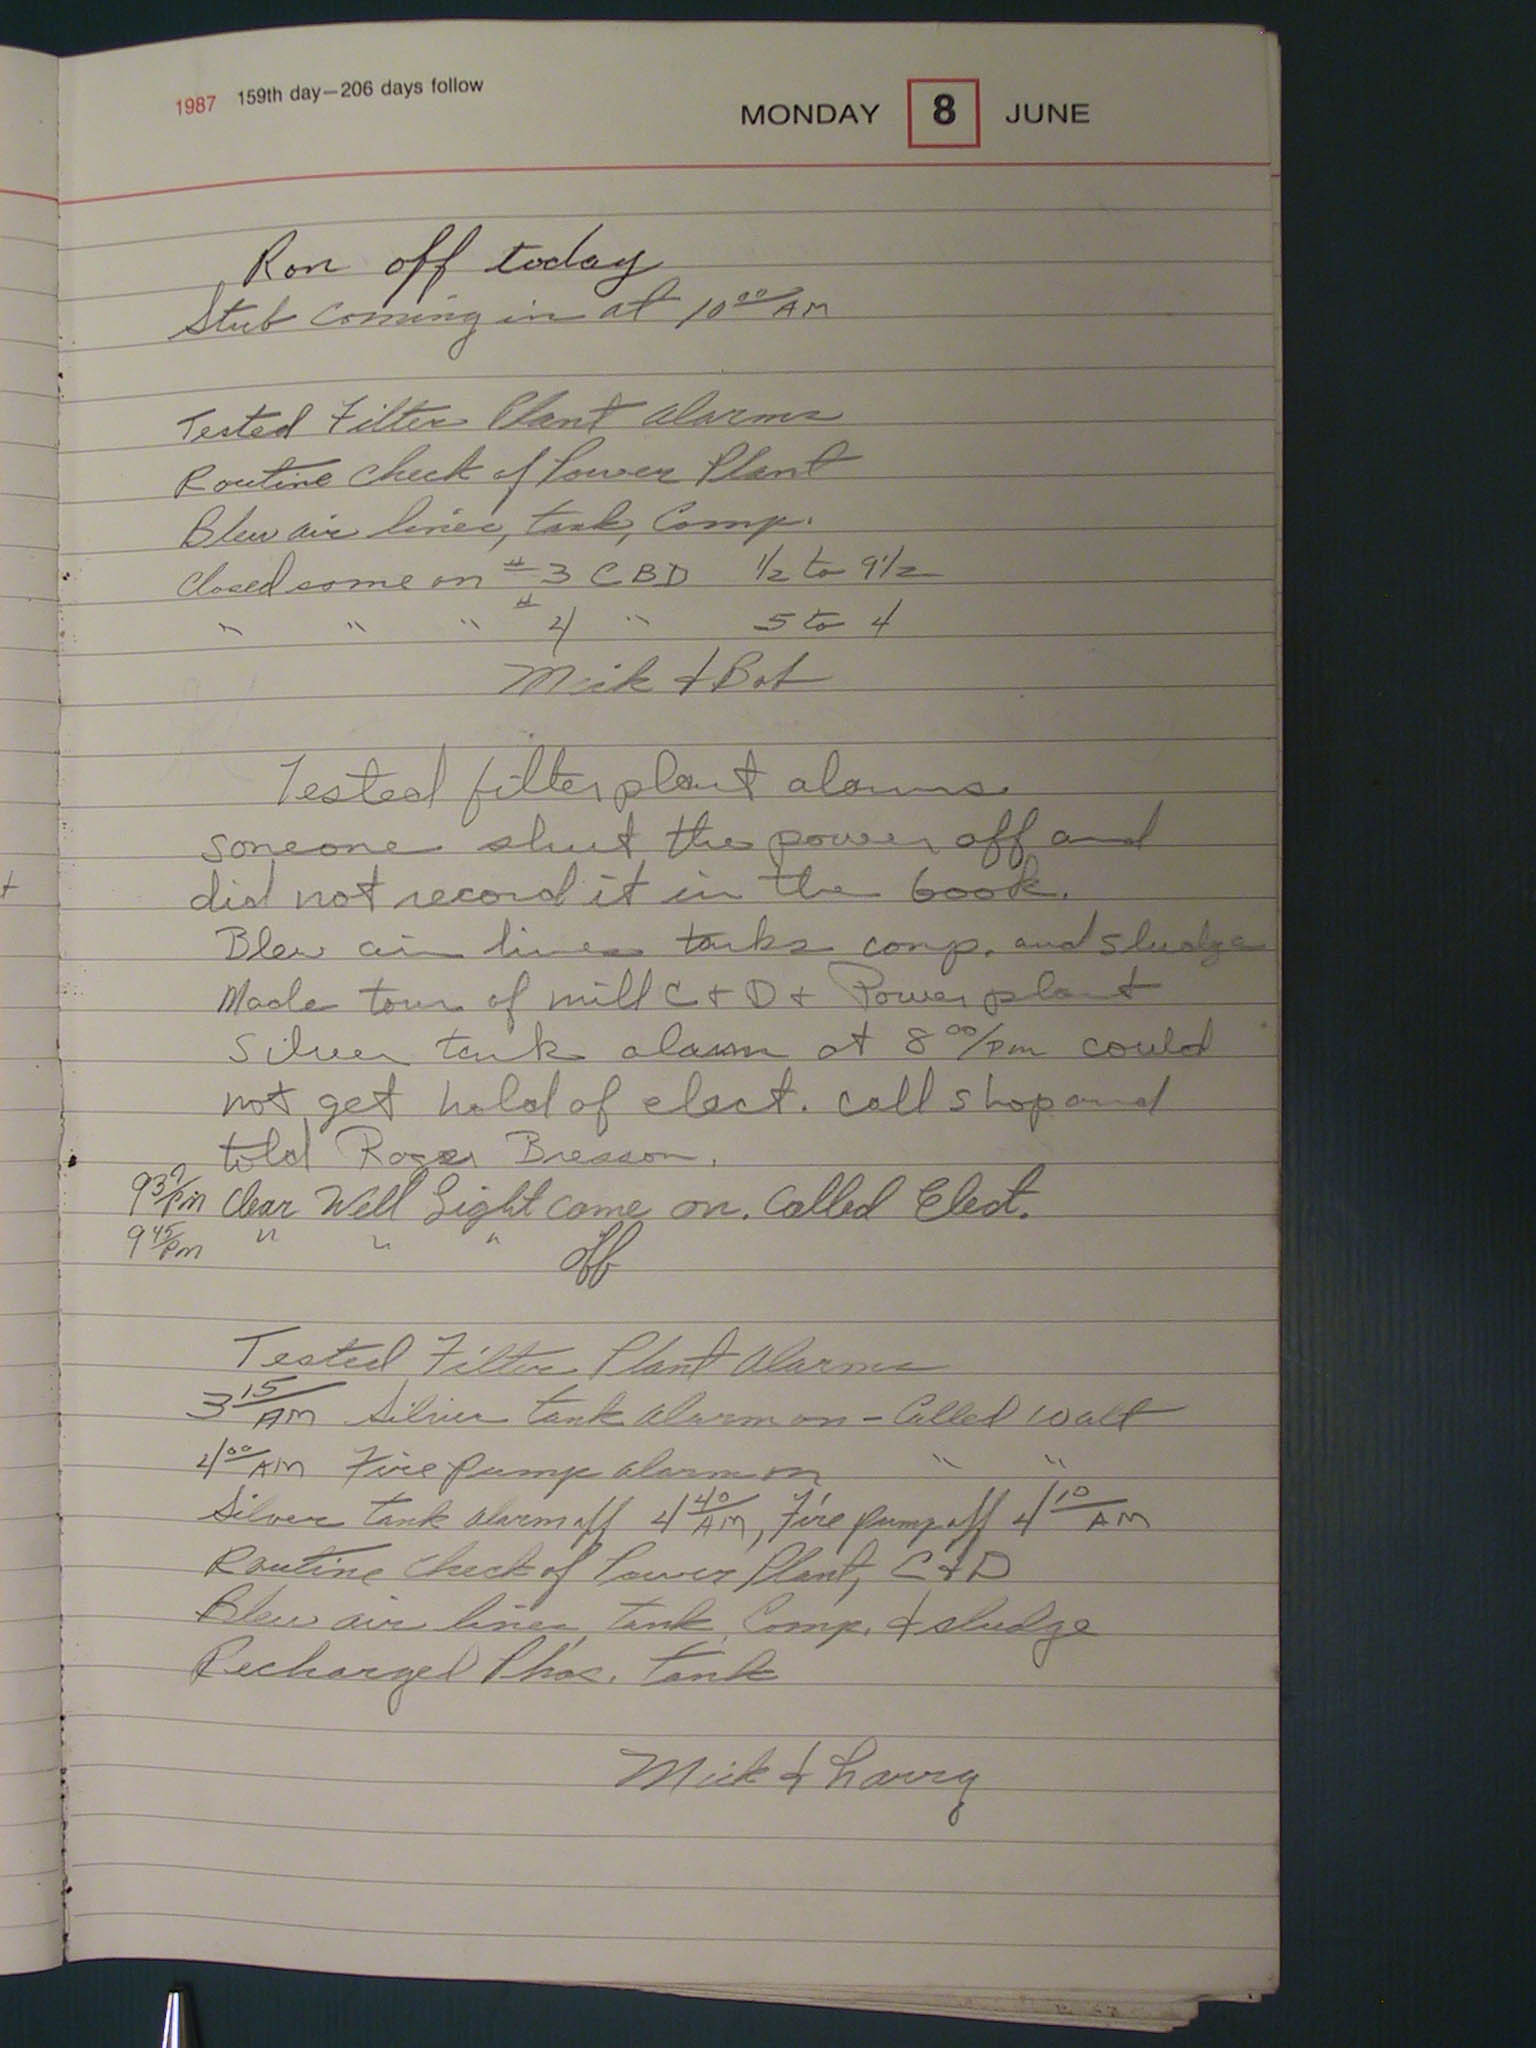 1987 159th day—206 days follow
MONDAY 8 JUNE
Ron off today
Stub coming in at 10 00 AM
Tested Filter Plant alarms
Routine check of Power Plant
Blew air lines, tank, Comp.
Closed some on #3 CBD 1/2 to 9 1/2
" " " #4 " 5 to 4
Mick & Bob
Tested filter plant alarms
someone shut the power off and
did not record it in the book.
Blew air lines tanks comp. and sludge
Made tour of mill C + D + Power plant
Silver tank alarm at 8 00/pm could
not get hold of elect. call shop and
told Roger Bresson.
PM Clear Well Light come on. Called Elect.
9 45/PM " " " off
Tested Filter Plant Alarms
3 15/AM Silver tank alarm on - Called Walt
4 00/AM Fire pump alarm on " "
Silver tank alarm off 4 40/AM, Fire pump off 4 10/AM
Routine check of Power Plant, C & D
Blew air lines, tank, Comp. & sludge
Recharged Phos. tank
Mick & Larry